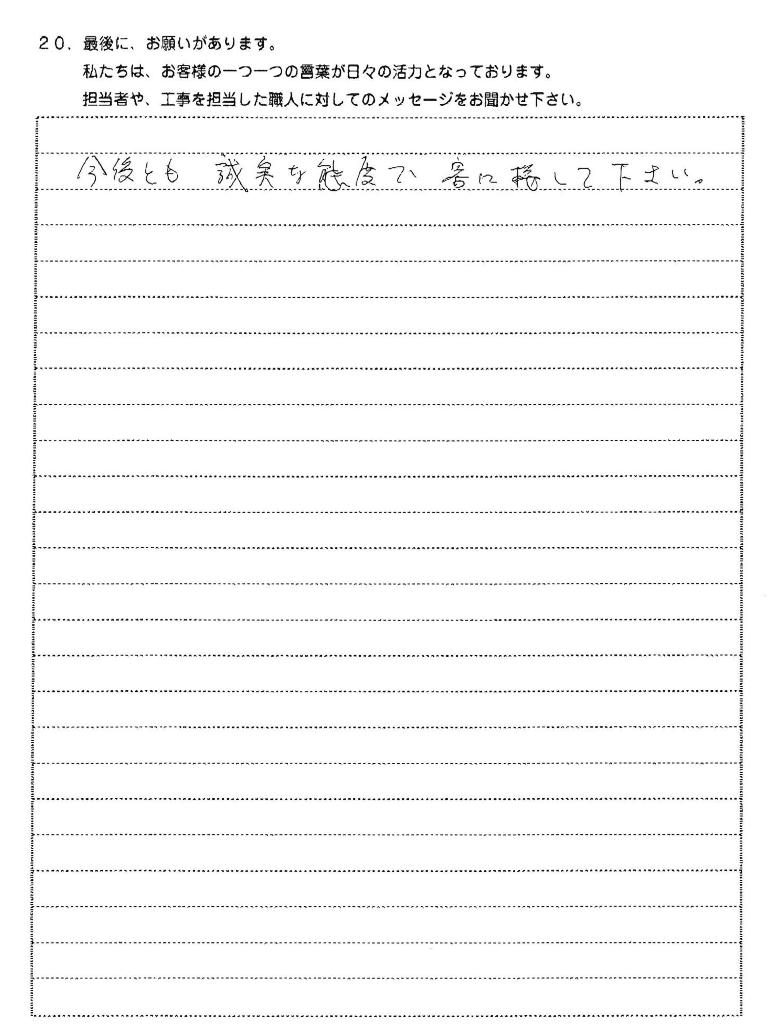 20. 最後に、お願いがあります。
私たちは、お客様の一つ一つの言葉が日々の活力となっております。
担当者や、工事を担当した職人に対してのメッセージをお聞かせ下さい。
今後とも 誠実な態度で 客に接して下さい。